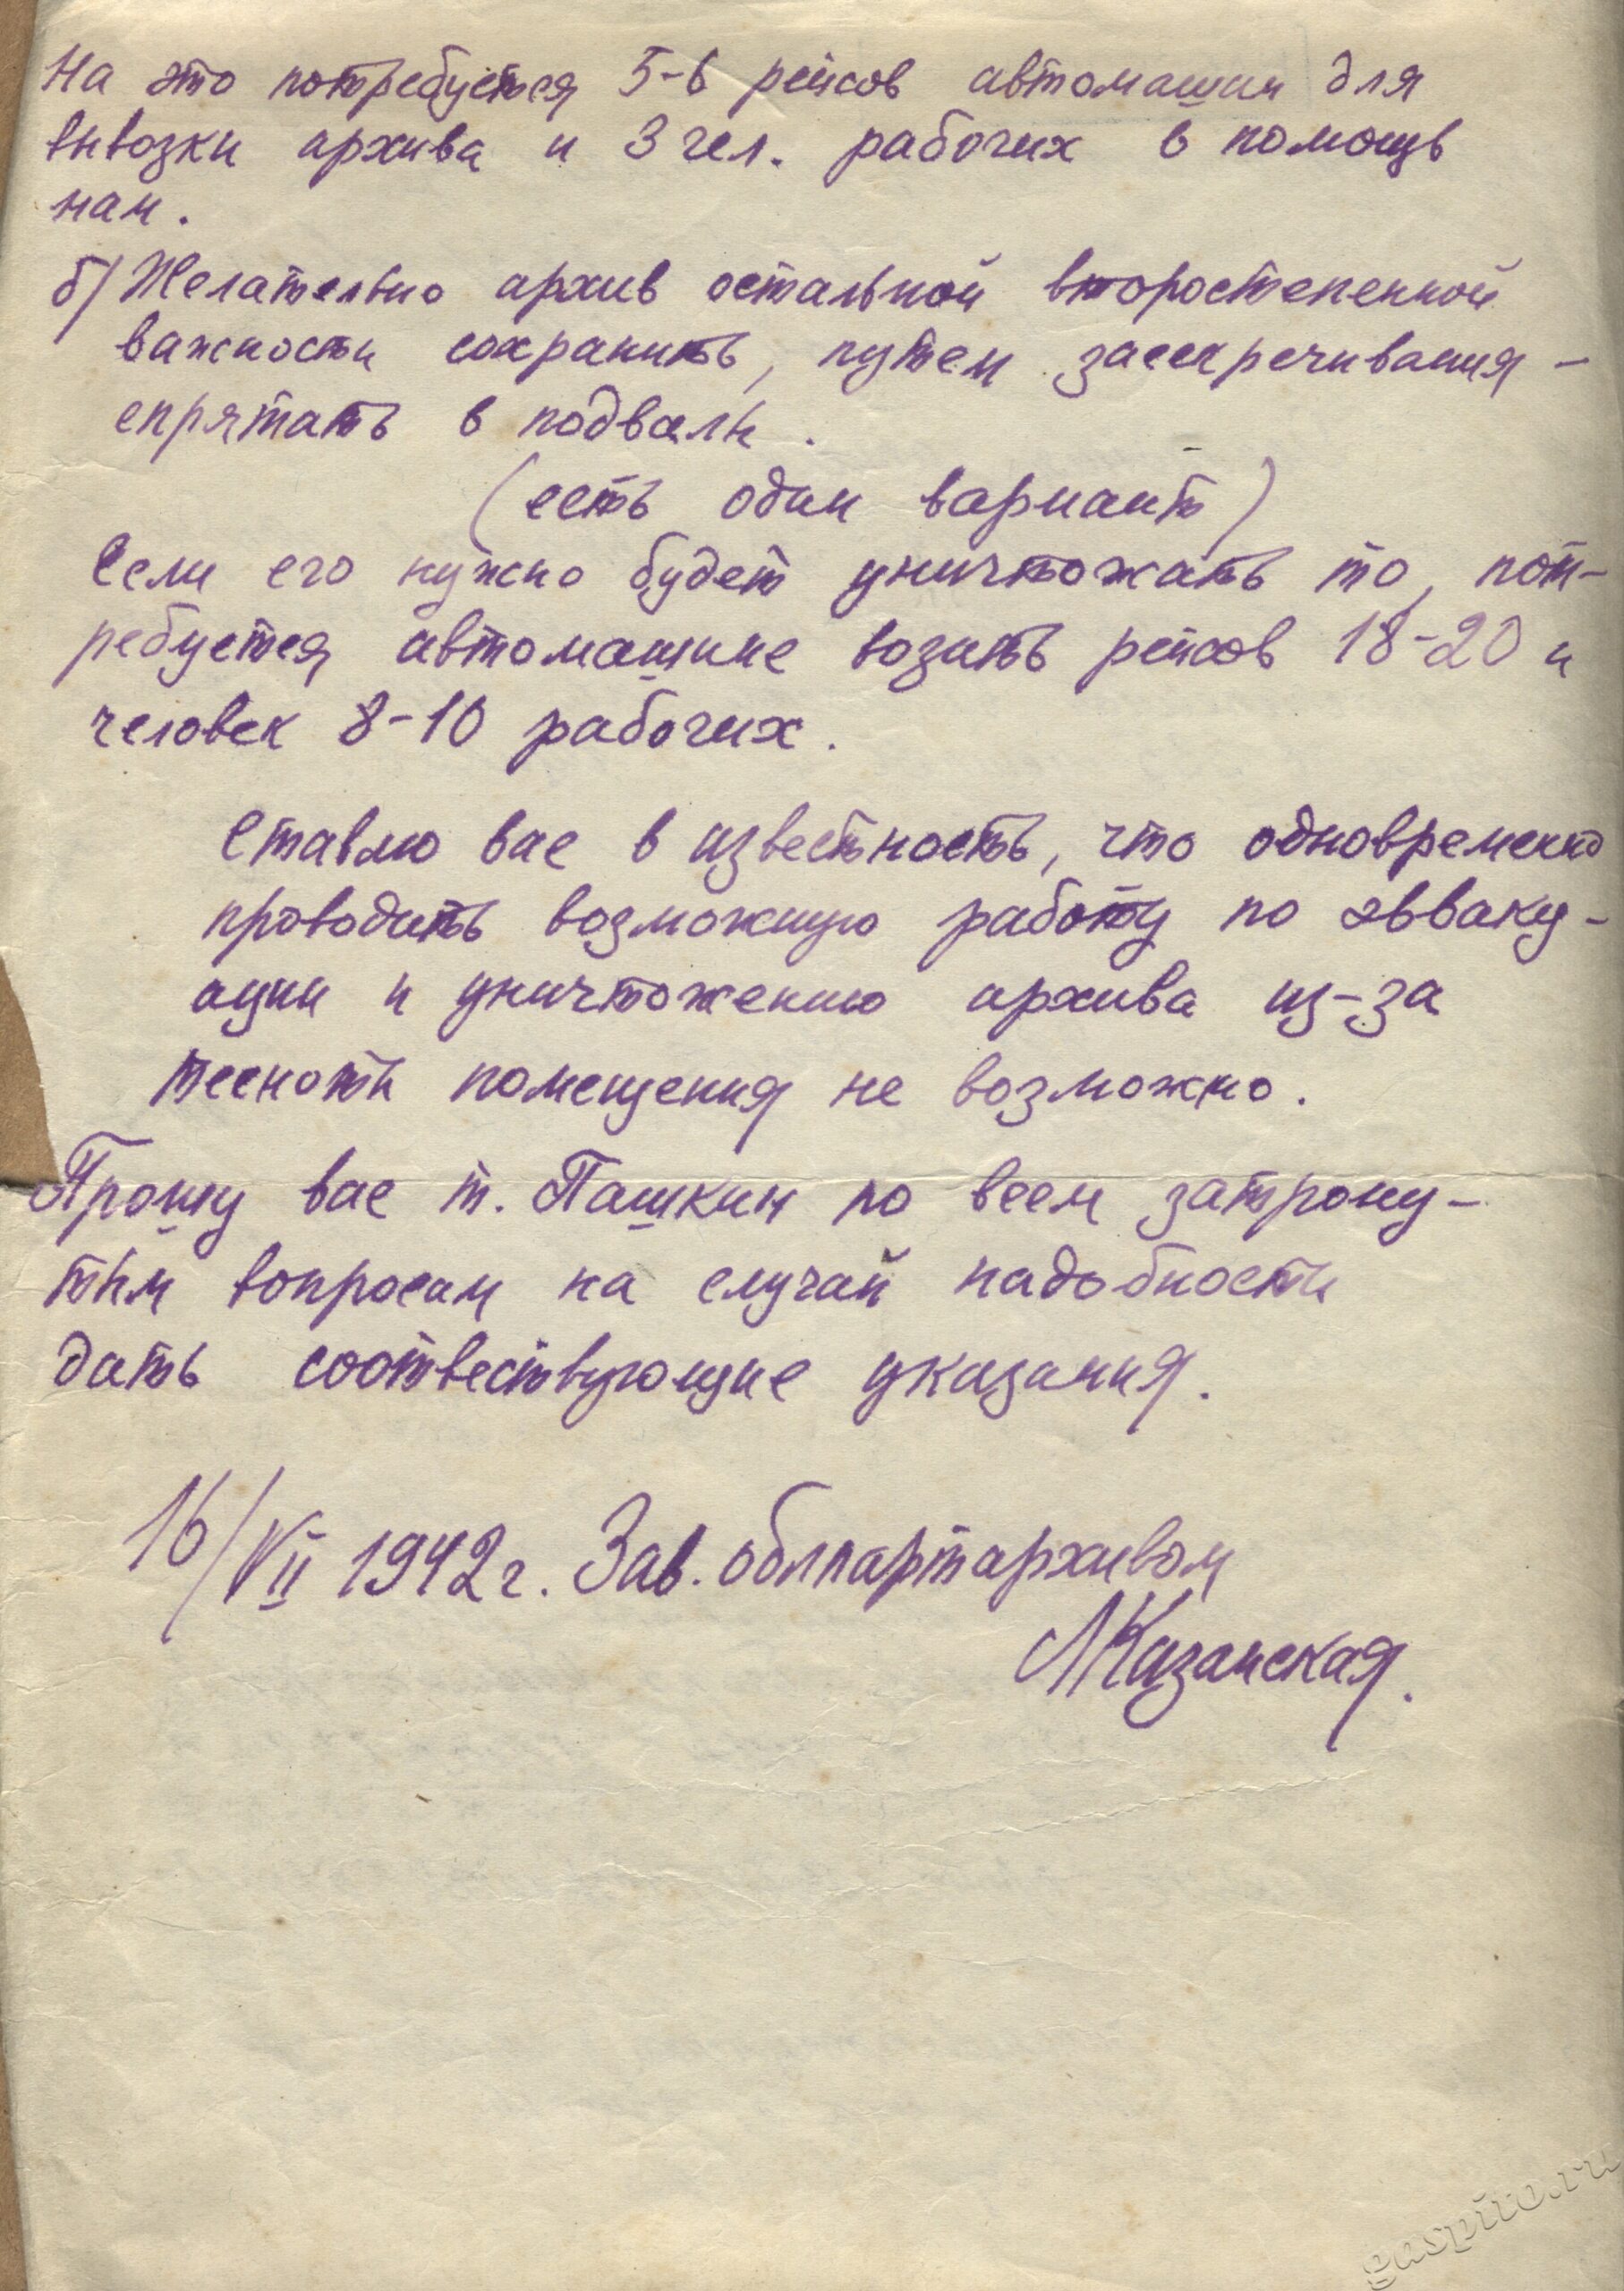 На это потребуется 5-6 рейсов автомашин для
вывозки архива и 3 чел. рабочих в помощь
нам.
б/ Желательно архив остальной второстепенной
важности сохранить, путем засекречивания -
спрятать в подвалы.
(есть один вариант)
Если его нужно будет уничтожать то, пот-
ребуется автомашине возить рейсов 18-20 и
человек 8-10 рабочих.
Ставлю вас в известность, что одновременно
проводить возможную работу по эвваку-
ации и уничтожению архива из-за
тесноты помещения не возможно.
Прошу вас т. Пашкин по всем затрону-
тым вопросам на случай надобности
дать соотвествующие указания.
16/VII 1942 г. Зав. облпартархивом
ЛКазанская.
gaspito.ru